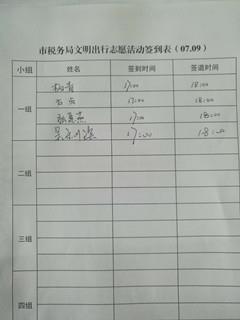 市税务局文明出行志愿活动签到表（07.09）
小组 姓名 签到时间 签退时间
一组
17:00 18:00
17:00 18:00
17:00 18:00
17:00 18:00
二组
三组
四组